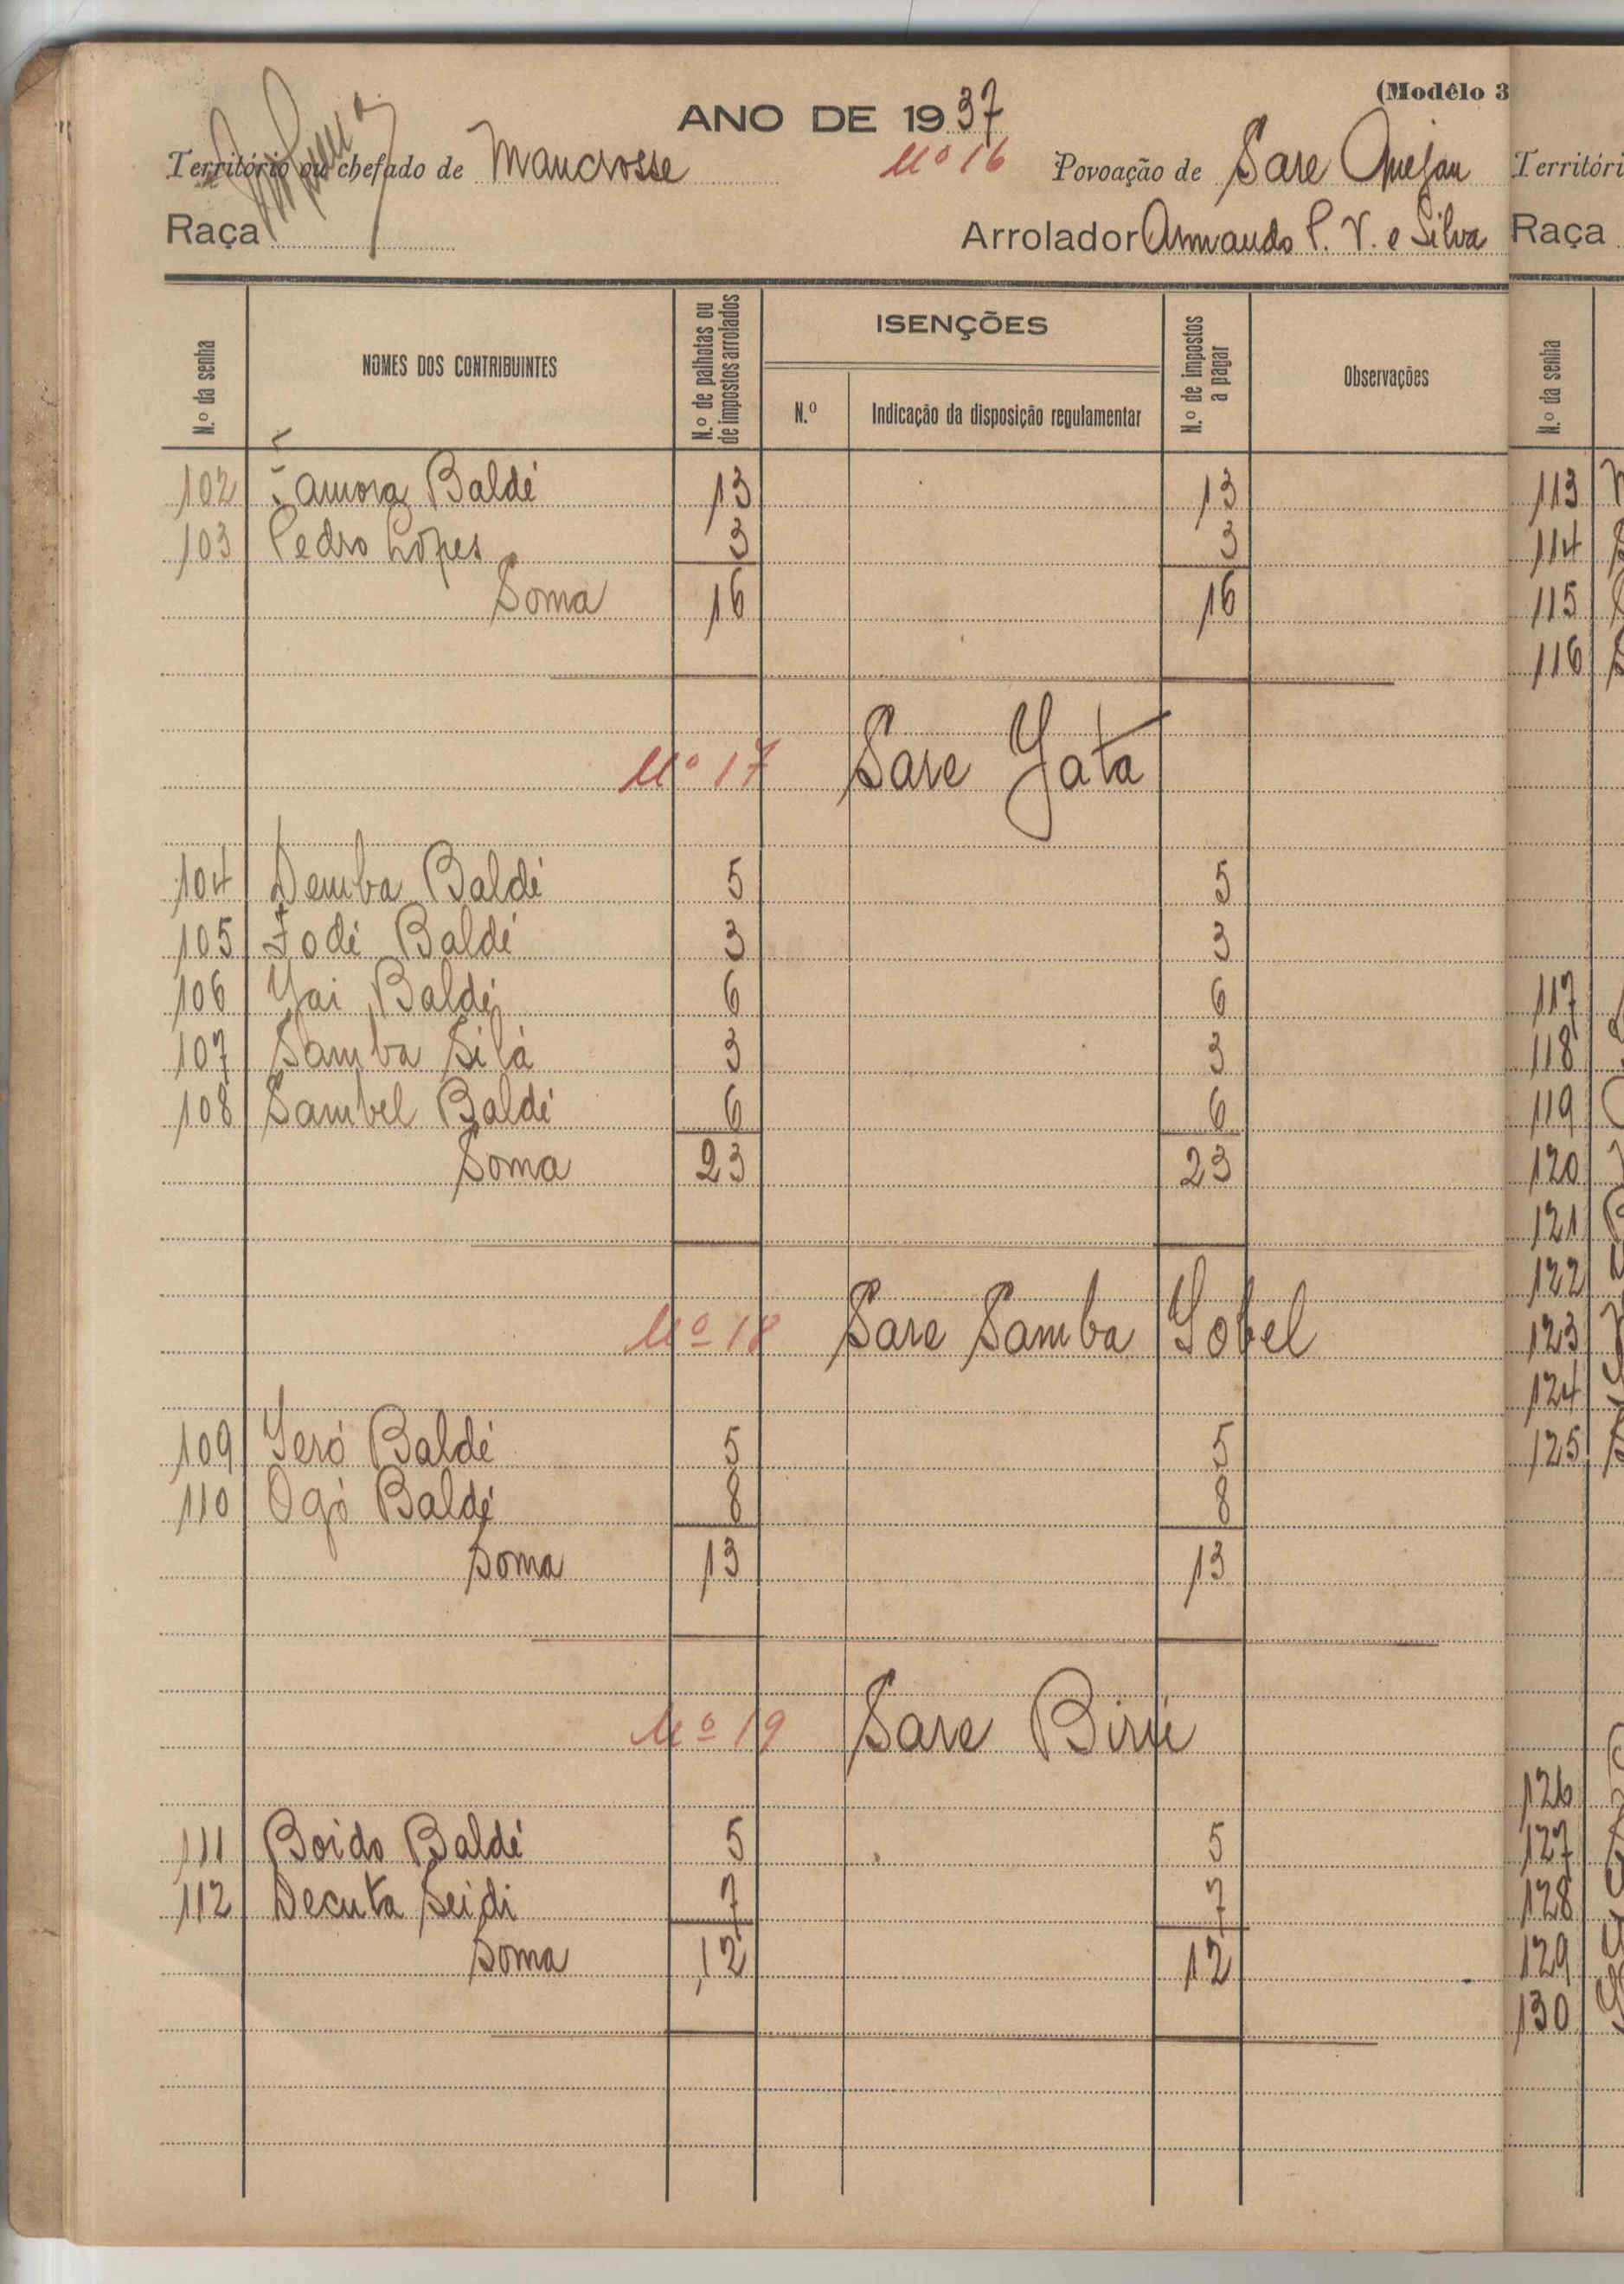 (Modêlo 3
ANO DE 1937
Território ou chefado de Mancrosse Nº 16 Povoação de Sare Quejan
Raça Arrolador Armando P. V. e Silva
N.º da senha NOMES DOS CONTRIBUINTES N.º de palhotas ou de impostos arrolados ISENÇÕES N.º Indicação da disposição regulamentar N.º de impostos a pagar Observações
102 Samora Baldé 13 13
103 Pedro Lopes 3 3
Soma 16 16
Nº 17 Sare Yata
104 Demba Baldé 5 5
105 Fodé Baldé 3 3
106 Yai Baldé 6 6
107 Samba Silá 3 3
108 Sambel Baldé 6 6
Soma 23 23
Nº 18 Sare Samba Yobel
109 Yeró Baldé 5 5
110 Ogó Baldé 8 8
Soma 13 13
Nº 19 Sare Birú
111 Boido Baldé 5 5
112 Decuta Seidi 7 7
Soma 12 12
Territóri
Raça
N.º da senha
113
114
115
116
117
118
119
120
121
122
123
124
125
126
127
128
129
130